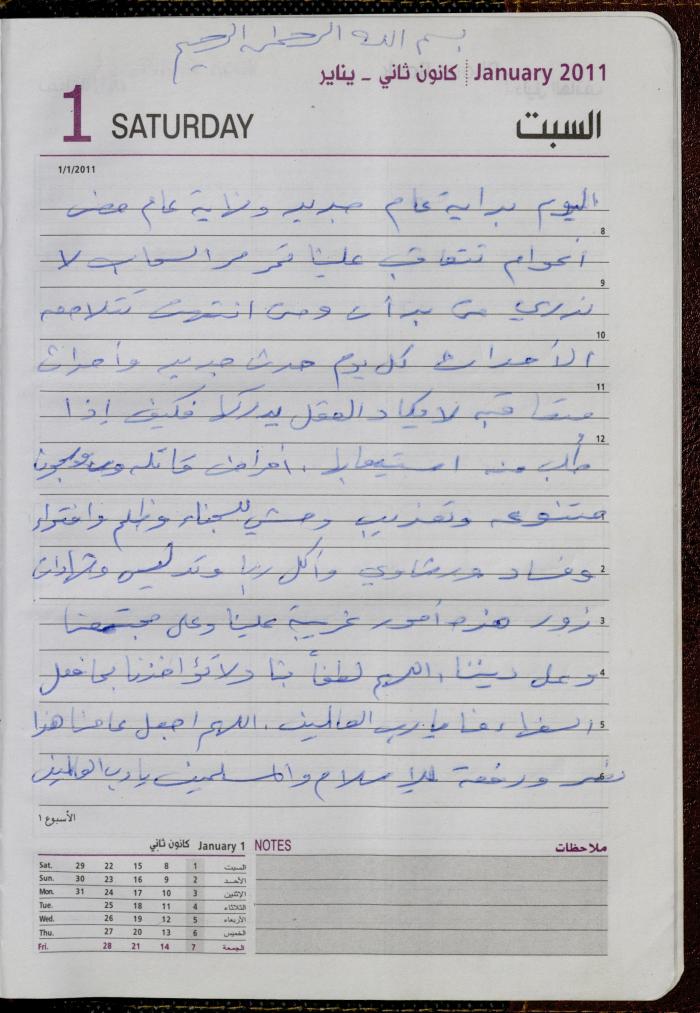 بسم الله الرحمن الرحيم
January 2011 كانون ثاني - يناير
1 SATURDAY السبت
1/1/2011
اليوم بداية عام جديد ونهاية عام مضى
8
أعوام تتعاقب علينا تمر مر السحاب لا
9
ندري متى بدأت ومتى انتهت تتلاحق
10
الأحداث كل يوم حدث جديد وأحداث
11
متعاقبه لا يكاد العقل يدركها فكيف إذا
12
طلب منه استيعابها. أمراض قاتله
متنوعه وتعذيب وحشي للسجناء وظلم وافتراء
2
وفساد ورشاوي وأكل ربا وتدليس وشهادات
3
زور هذه أمور غريبة علينا وعلى مجتمعنا
4
وعلى ديننا، اللهم لطفاً بنا ولا تؤاخذنا بما فعل
5
السفهاء منا يا رب العالمين. اللهم اجعل عامنا هذا
6
نصر ورفعة للإسلام والمسلمين يا رب العالمين
الأسبوع ١
January 1 كانون ثاني
Sat. 29 22 15 8 1 السبت
Sun. 30 23 16 9 2 الأحد
Mon. 31 24 17 10 3 الإثنين
Tue. 25 18 11 4 الثلاثاء
Wed. 26 19 12 5 الأربعاء
Thu. 27 20 13 6 الخميس
Fri. 28 21 14 7 الجمعة
NOTES ملاحظات